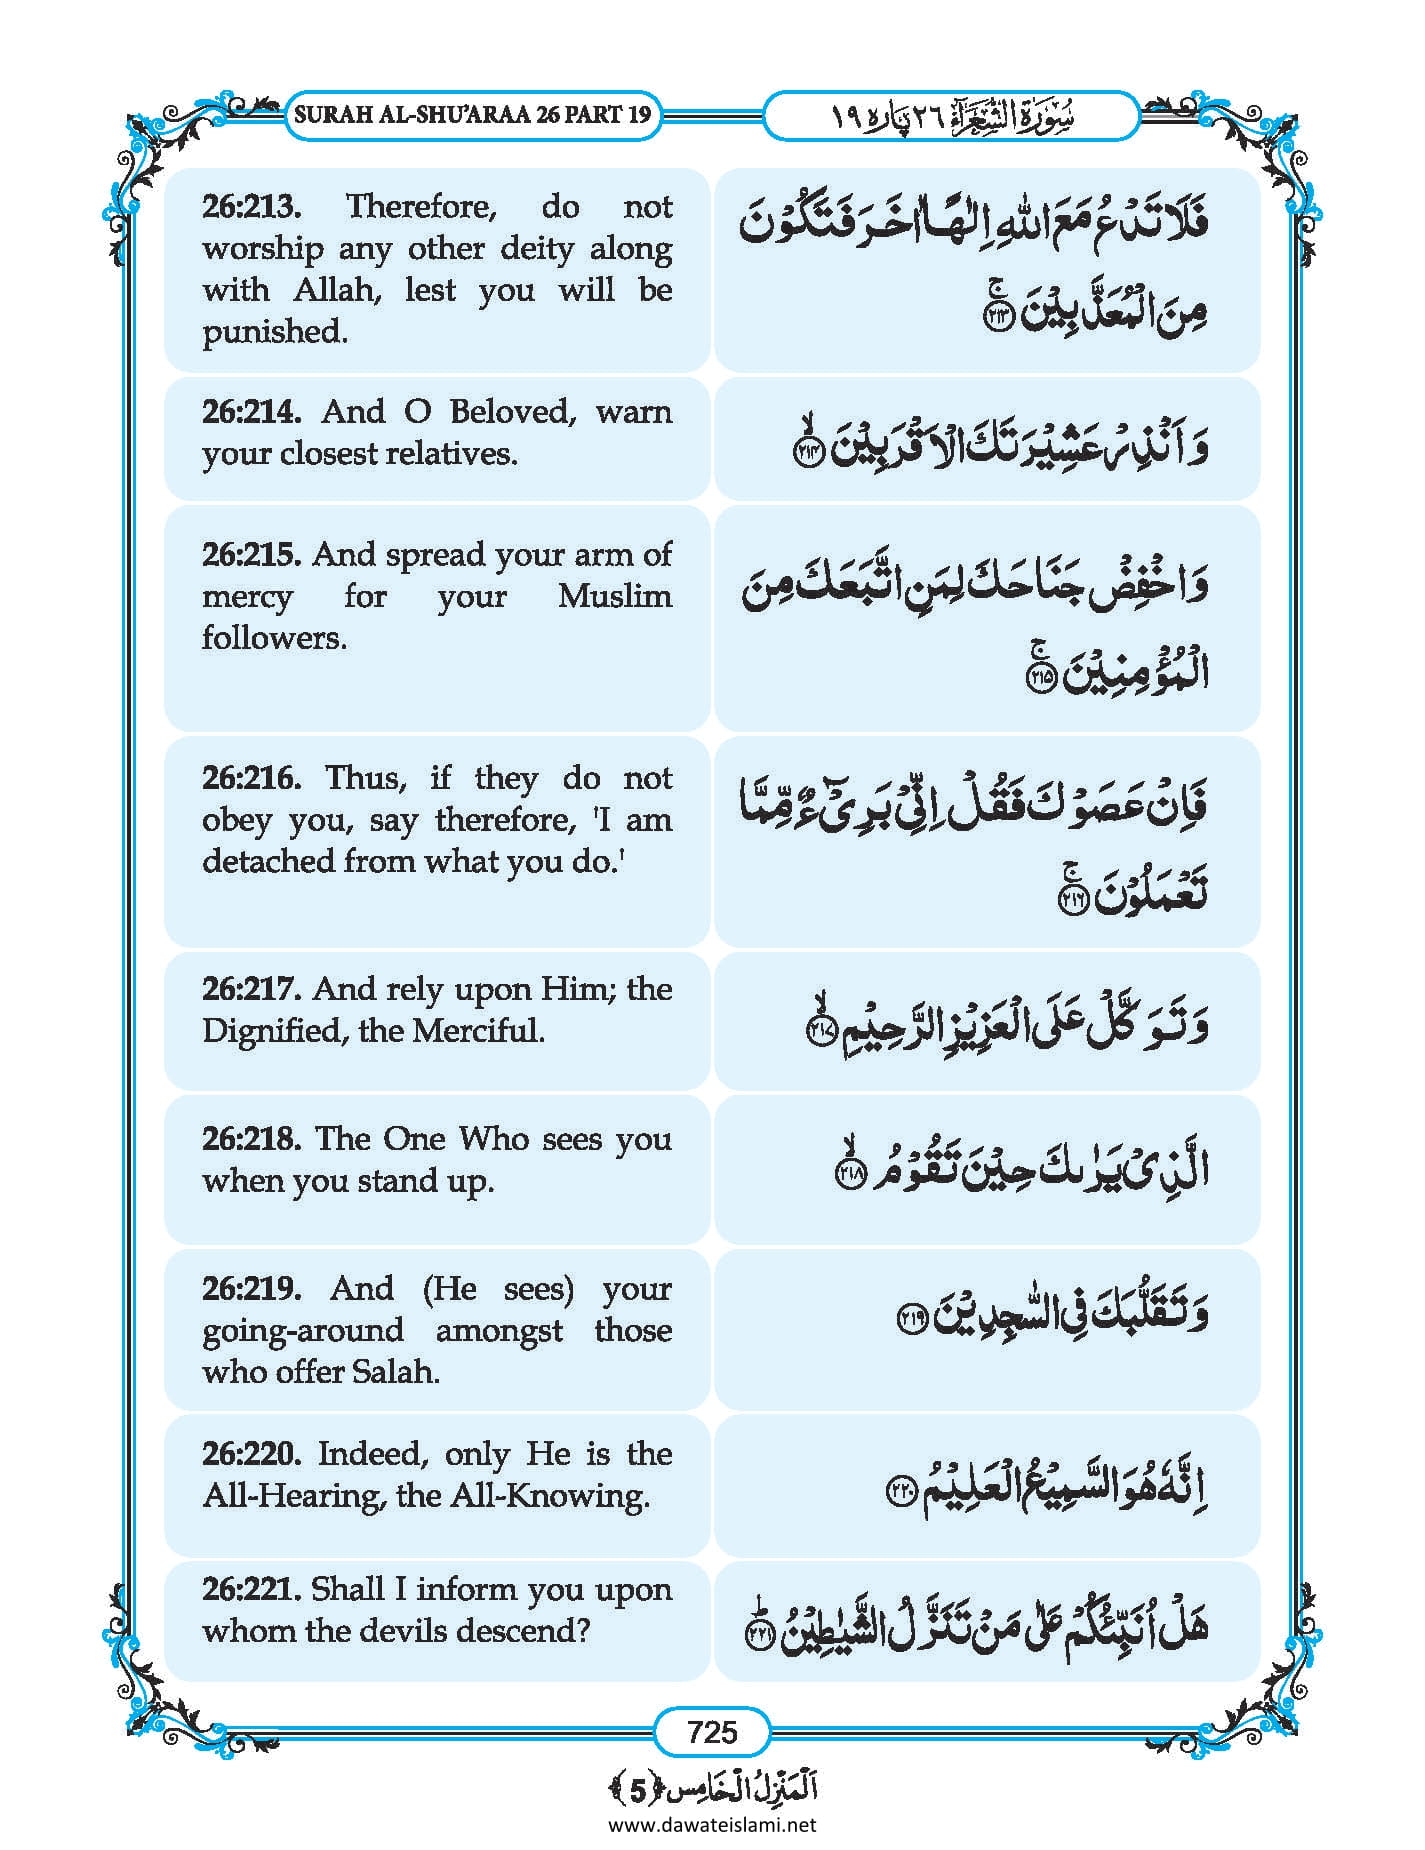 SURAH AL-SHU’ARAA 26 PART 19
سُوْرَةُ الشُّعَرَآء ٢٦ پاره ١٩
26:213. Therefore, do not
worship any other deity along
with Allah, lest you will be
punished.
فَلَا تَدْعُ مَعَ اللّٰهِ اِلٰهًا اٰخَرَ فَتَكُوْنَ
مِنَ الْمُعَذَّبِيْنَ ۚ﴿٢١٣﴾
26:214. And O Beloved, warn
your closest relatives.
وَ اَنْذِرْ عَشِيْرَتَكَ الْاَقْرَبِيْنَ ۙ﴿٢١٤﴾
26:215. And spread your arm of
mercy for your Muslim
followers.
وَ اخْفِضْ جَنَاحَكَ لِمَنِ اتَّبَعَكَ مِنَ
الْمُؤْمِنِيْنَ ۚ﴿٢١٥﴾
26:216. Thus, if they do not
obey you, say therefore, 'I am
detached from what you do.'
فَاِنْ عَصَوْكَ فَقُلْ اِنِّيْ بَرِيْٓءٌ مِّمَّا
تَعْمَلُوْنَ ۚ﴿٢١٦﴾
26:217. And rely upon Him; the
Dignified, the Merciful.
وَ تَوَكَّلْ عَلَى الْعَزِيْزِ الرَّحِيْمِ ۙ﴿٢١٧﴾
26:218. The One Who sees you
when you stand up.
الَّذِيْ يَرٰىكَ حِيْنَ تَقُوْمُ ۙ﴿٢١٨﴾
26:219. And (He sees) your
going-around amongst those
who offer Salah.
وَ تَقَلُّبَكَ فِي السّٰجِدِيْنَ ﴿٢١٩﴾
26:220. Indeed, only He is the
All-Hearing, the All-Knowing.
اِنَّهٗ هُوَ السَّمِيْعُ الْعَلِيْمُ ﴿٢٢٠﴾
26:221. Shall I inform you upon
whom the devils descend?
هَلْ اُنَبِّئُكُمْ عَلٰى مَنْ تَنَزَّلُ الشَّيٰطِيْنُ ؕ﴿٢٢١﴾
725
اَلْمَنْزِلُ الْخَامِس ﴿5﴾
www.dawateislami.net